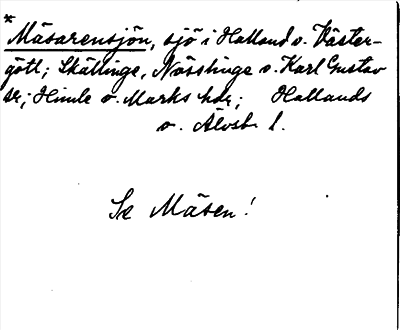 *
Mäsarensjön, sjö i Halland o. Väster-
götl; Skällinge, Nösslinge o. Karl Gustav
sr; Himle o. Marks hdr; Hallands
o. Älvsb. l.
Se Mäsen!